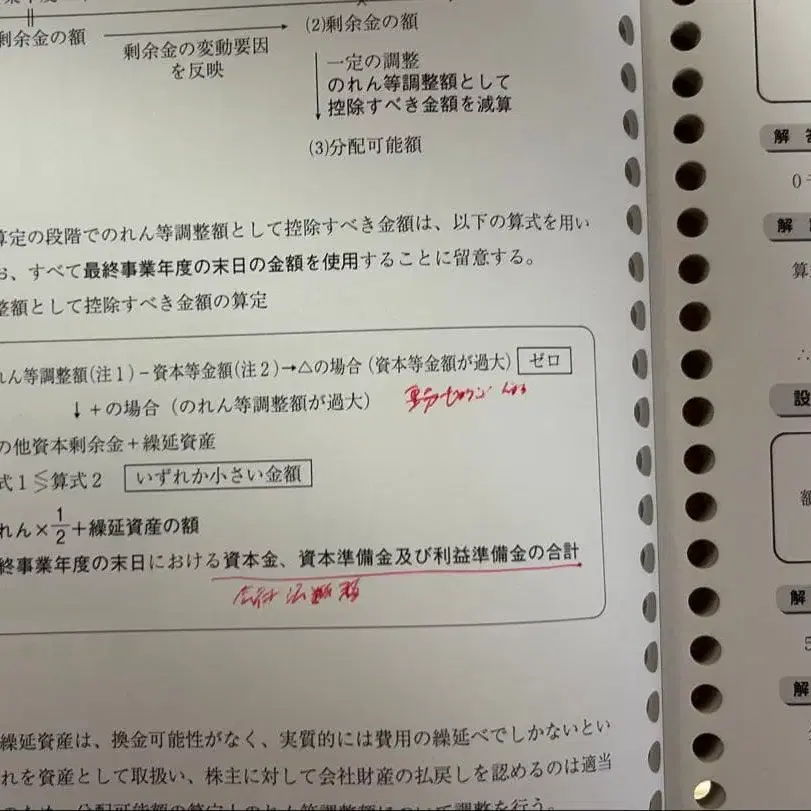 剰余金の額
剰余金の変動要因
を反映
(2)剰余金の額
一定の調整
のれん等調整額として
控除すべき金額を減算
(3)分配可能額
算定の段階でのれん等調整額として控除すべき金額は、以下の算式を用い
お、すべて最終事業年度の末日の金額を使用することに留意する。
整額として控除すべき金額の算定
れん等調整額(注1)－資本等金額(注2)→△の場合(資本等金額が過大) ゼロ
↓＋の場合(のれん等調整額が過大)
の他資本剰余金＋繰延資産
式1≶算式2 いずれか小さい金額
れん×1/2＋繰延資産の額
終事業年度の末日における資本金、資本準備金及び利益準備金の合計
繰延資産は、換金可能性がなく、実質的には費用の繰延べでしかないとい
れを資産として取扱い、株主に対して会社財産の払戻しを認めるのは適当
分配可能額の算定上のれん等調整額について調整を行う。
解
0
解
算
∴
設
額
解
5
解